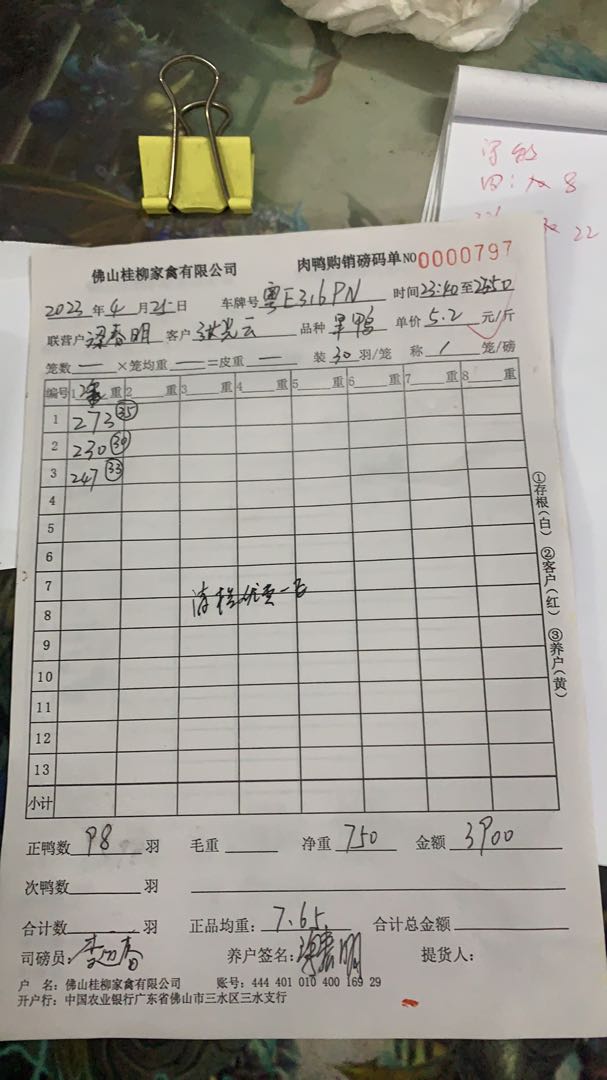 佛山桂柳家禽有限公司 肉鸭购销磅码单 NO 0000797
2023年4月21日 车牌号 粤E316PN 时间23:40至2350
联营户 梁春明 客户 光云 品种 旱鸭 单价 5.2 元/斤
笼数 一 ×笼均重 一 =皮重 一 装 30 羽/笼 称 1 笼/磅
编号 1 重 2 重 3 重 4 重 5 重 6 重 7 重 8 重
1 273 35
2 230 30
3 247 33
4
5
6
7
8
9
10
11
12
13
小计
①存根(白) ②客户(红) ③养户(黄)
正鸭数 98 羽 毛重 净重 750 金额 3900
次鸭数 羽
合计数 羽 正品均重: 7.65 合计总金额
司磅员: 养户签名: 明 提货人:
户 名: 佛山桂柳家禽有限公司 账号: 444 401 010 400 169 29
开户行: 中国农业银行广东省佛山市三水区三水支行
8
22